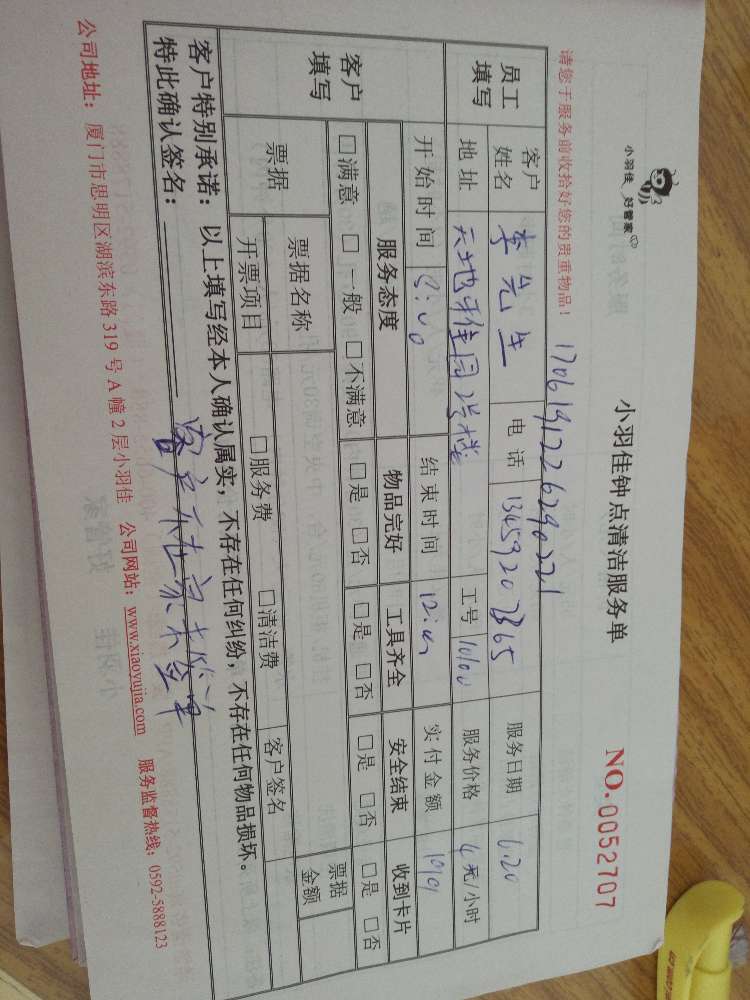 小羽佳 好管家
小羽佳钟点清洁服务单
NO. 0052707
请您于服务前收拾好您的贵重物品!
员工填写 客户姓名 李先生 电话 服务日期 6.20
地址 工号 服务价格 元/小时
开始时间 结束时间 实付金额
客户填写 服务态度 物品完好 工具齐全 安全结束 收到卡片
□满意 □一般 □不满意 □是 □否 □是 □否 □是 □否 □是 □否
票据 票据名称 票据金额
开票项目 □服务费 □清洁费 客户签名
客户特别承诺:以上填写经本人确认属实,不存在任何纠纷,不存在任何物品损坏。
特此确认签名:
公司地址:厦门市思明区湖滨东路 319 号 A 幢 2 层小羽佳 公司网站:www.xiaoyujia.com 服务监督热线:0592-5888123